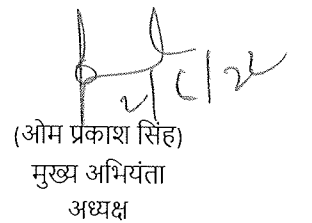 (ओम प्रकाश सिंह)
मुख्य अभियंता
अध्यक्ष